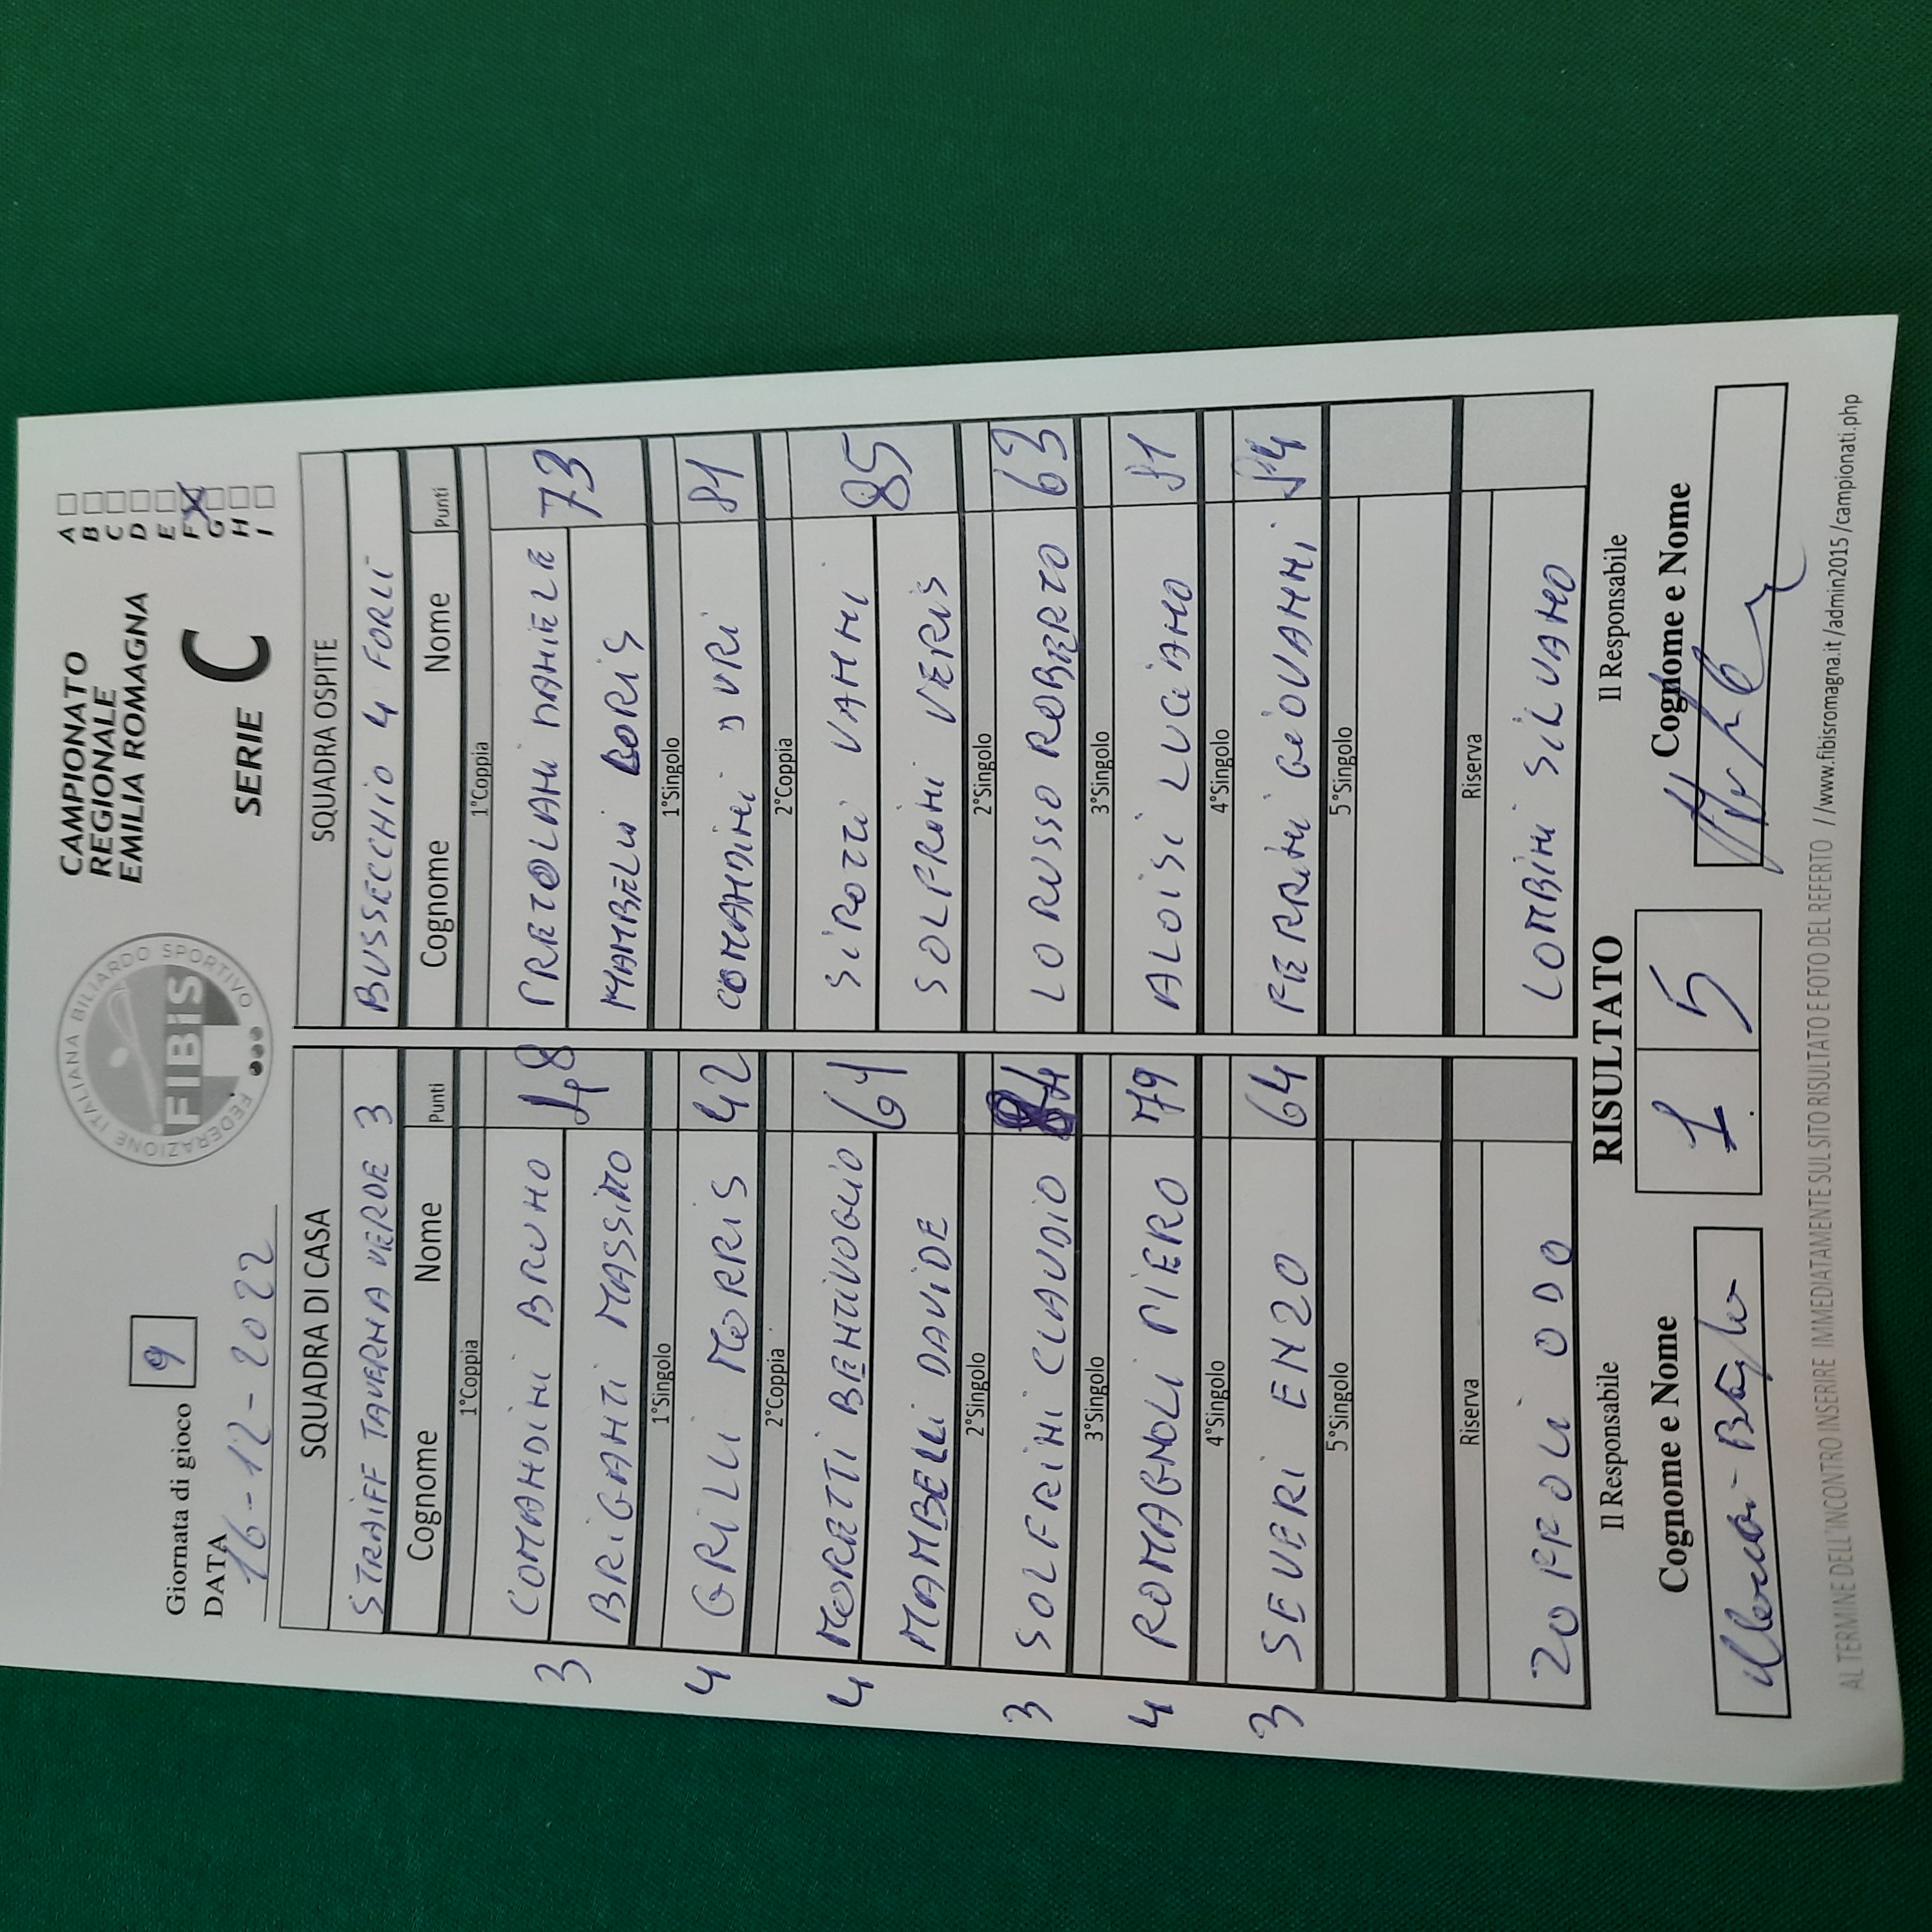 Giornata di gioco 9
DATA 16-12-2022
FEDERAZIONE ITALIANA BILIARDO SPORTIVO
FIBiS
CAMPIONATO
REGIONALE
EMILIA ROMAGNA
SERIE C
A
B
C
D
E
F X
G
H
I
SQUADRA DI CASA SQUADRA OSPITE
STRAIFF TAVERNA VERDE 3 BUSSECCHIO 4 FORLI
Cognome Nome Punti Cognome Nome Punti
1°Coppia 1°Coppia
3 COMANDINI BRUNO 48 PRETOLANI DANIELE 73
BRIGANTI MASSIMO MAMBELLI BORIS
1°Singolo 1°Singolo
4 GRILLI MORRIS 42 COMANDINI YURI 81
2°Coppia 2°Coppia
4 MORETTI BENTIVOGLIO 61 SIROTTI VANNI 85
MAMBELLI DAVIDE SOLFRINI VERIS
2°Singolo 2°Singolo
3 SOLFRINI CLAUDIO LO RUSSO ROBERTO 63
3°Singolo 3°Singolo
4 ROMAGNOLI PIERO 79 ALOISI LUCIANO 81
4°Singolo 4°Singolo
3 SEVERI ENZO 64 FERRINI GIOVANNI 84
5°Singolo 5°Singolo
Riserva Riserva
ZOFFOLI ODO LOMBINI SILVANO
Il Responsabile RISULTATO Il Responsabile
Cognome e Nome 1 5 Cognome e Nome
AL TERMINE DELL'INCONTRO INSERIRE IMMEDIATAMENTE SUL SITO RISULTATO E FOTO DEL REFERTO //www.fibisromagna.it/admin2015/campionati.php